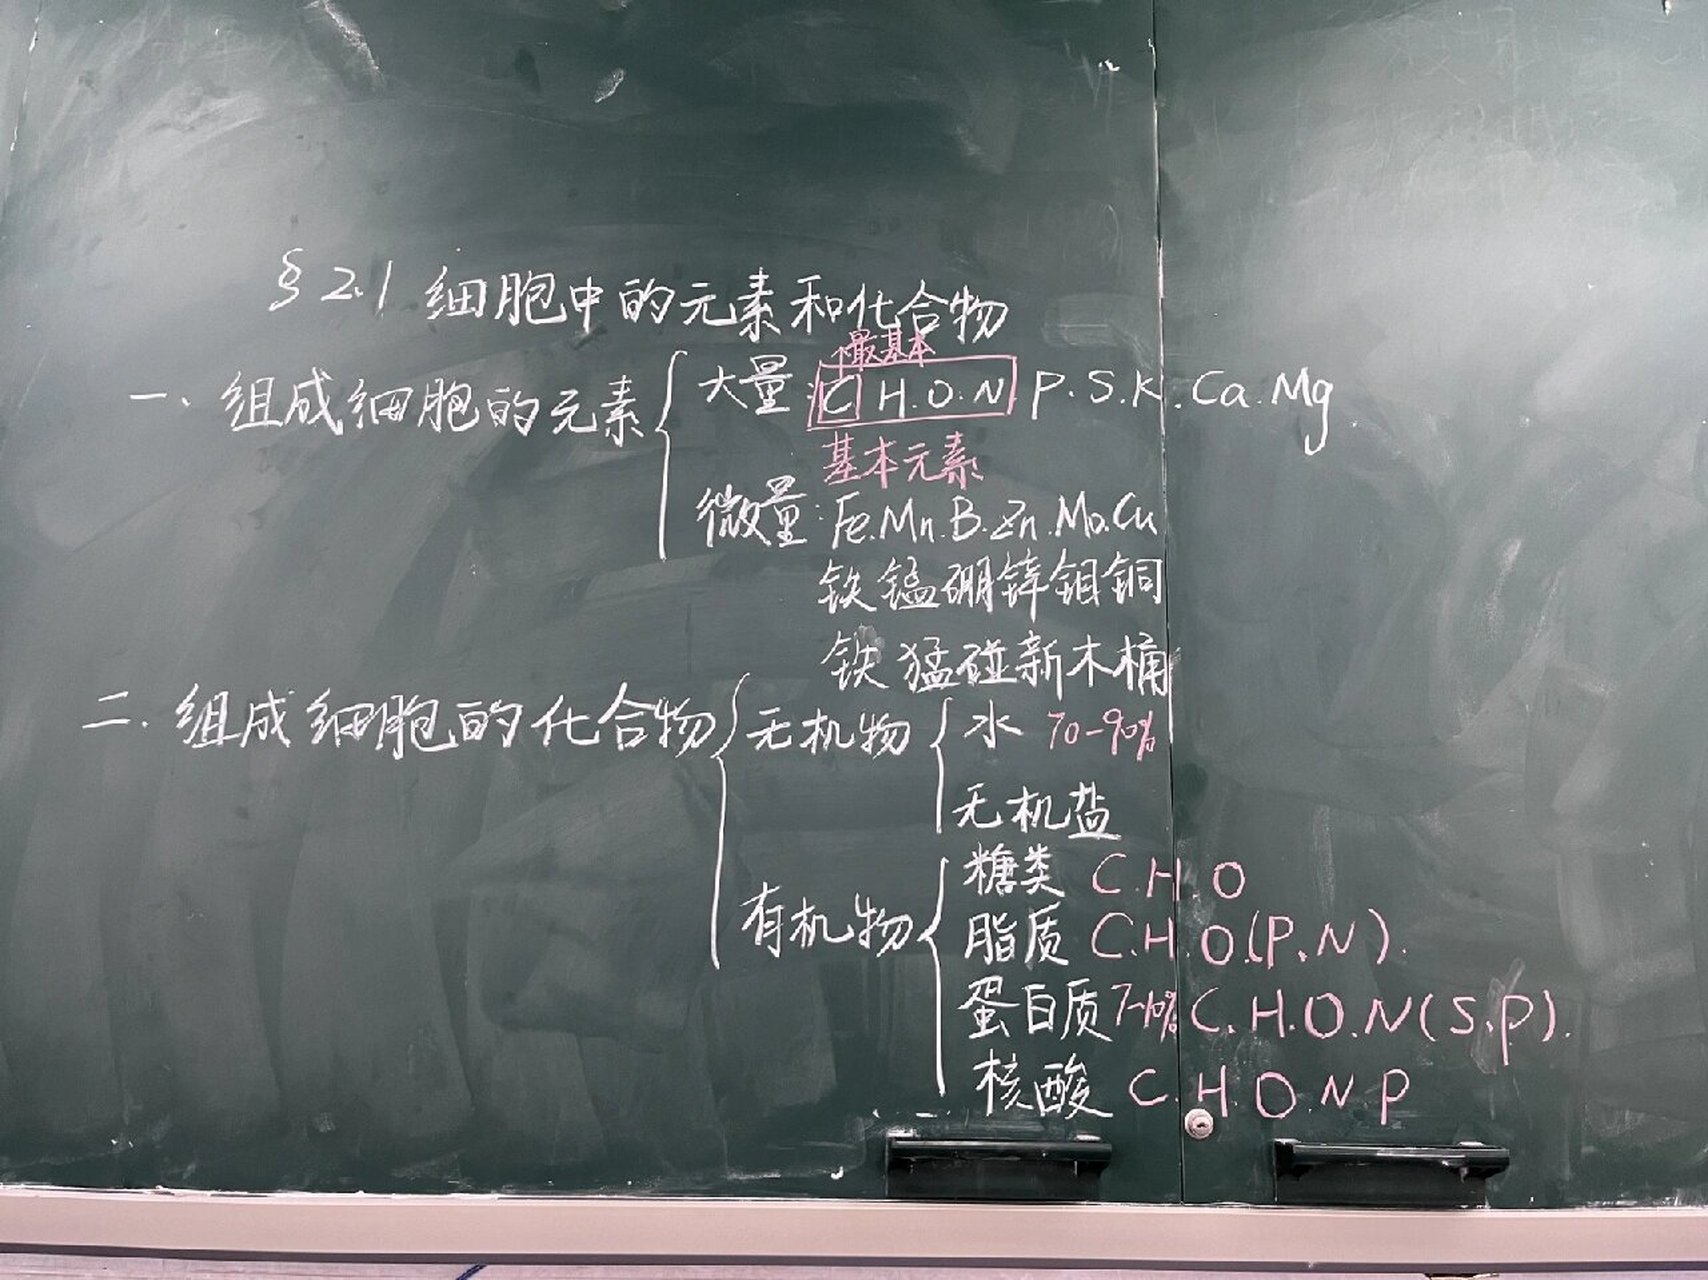 §2.1 细胞中的元素和化合物
最基本
一、组成细胞的元素 大量: C H.O.N P.S.K.Ca.Mg
基本元素
微量: Fe.Mn.B.Zn.Mo.Cu
铁锰硼锌钼铜
铁猛碰新木桶
二、组成细胞的化合物 无机物 水 70-90%
无机盐
糖类 C.H.O
有机物 脂质 C.H.O(P.N).
蛋白质 7-10% C.H.O.N(S.P).
核酸 C.H.O.N P